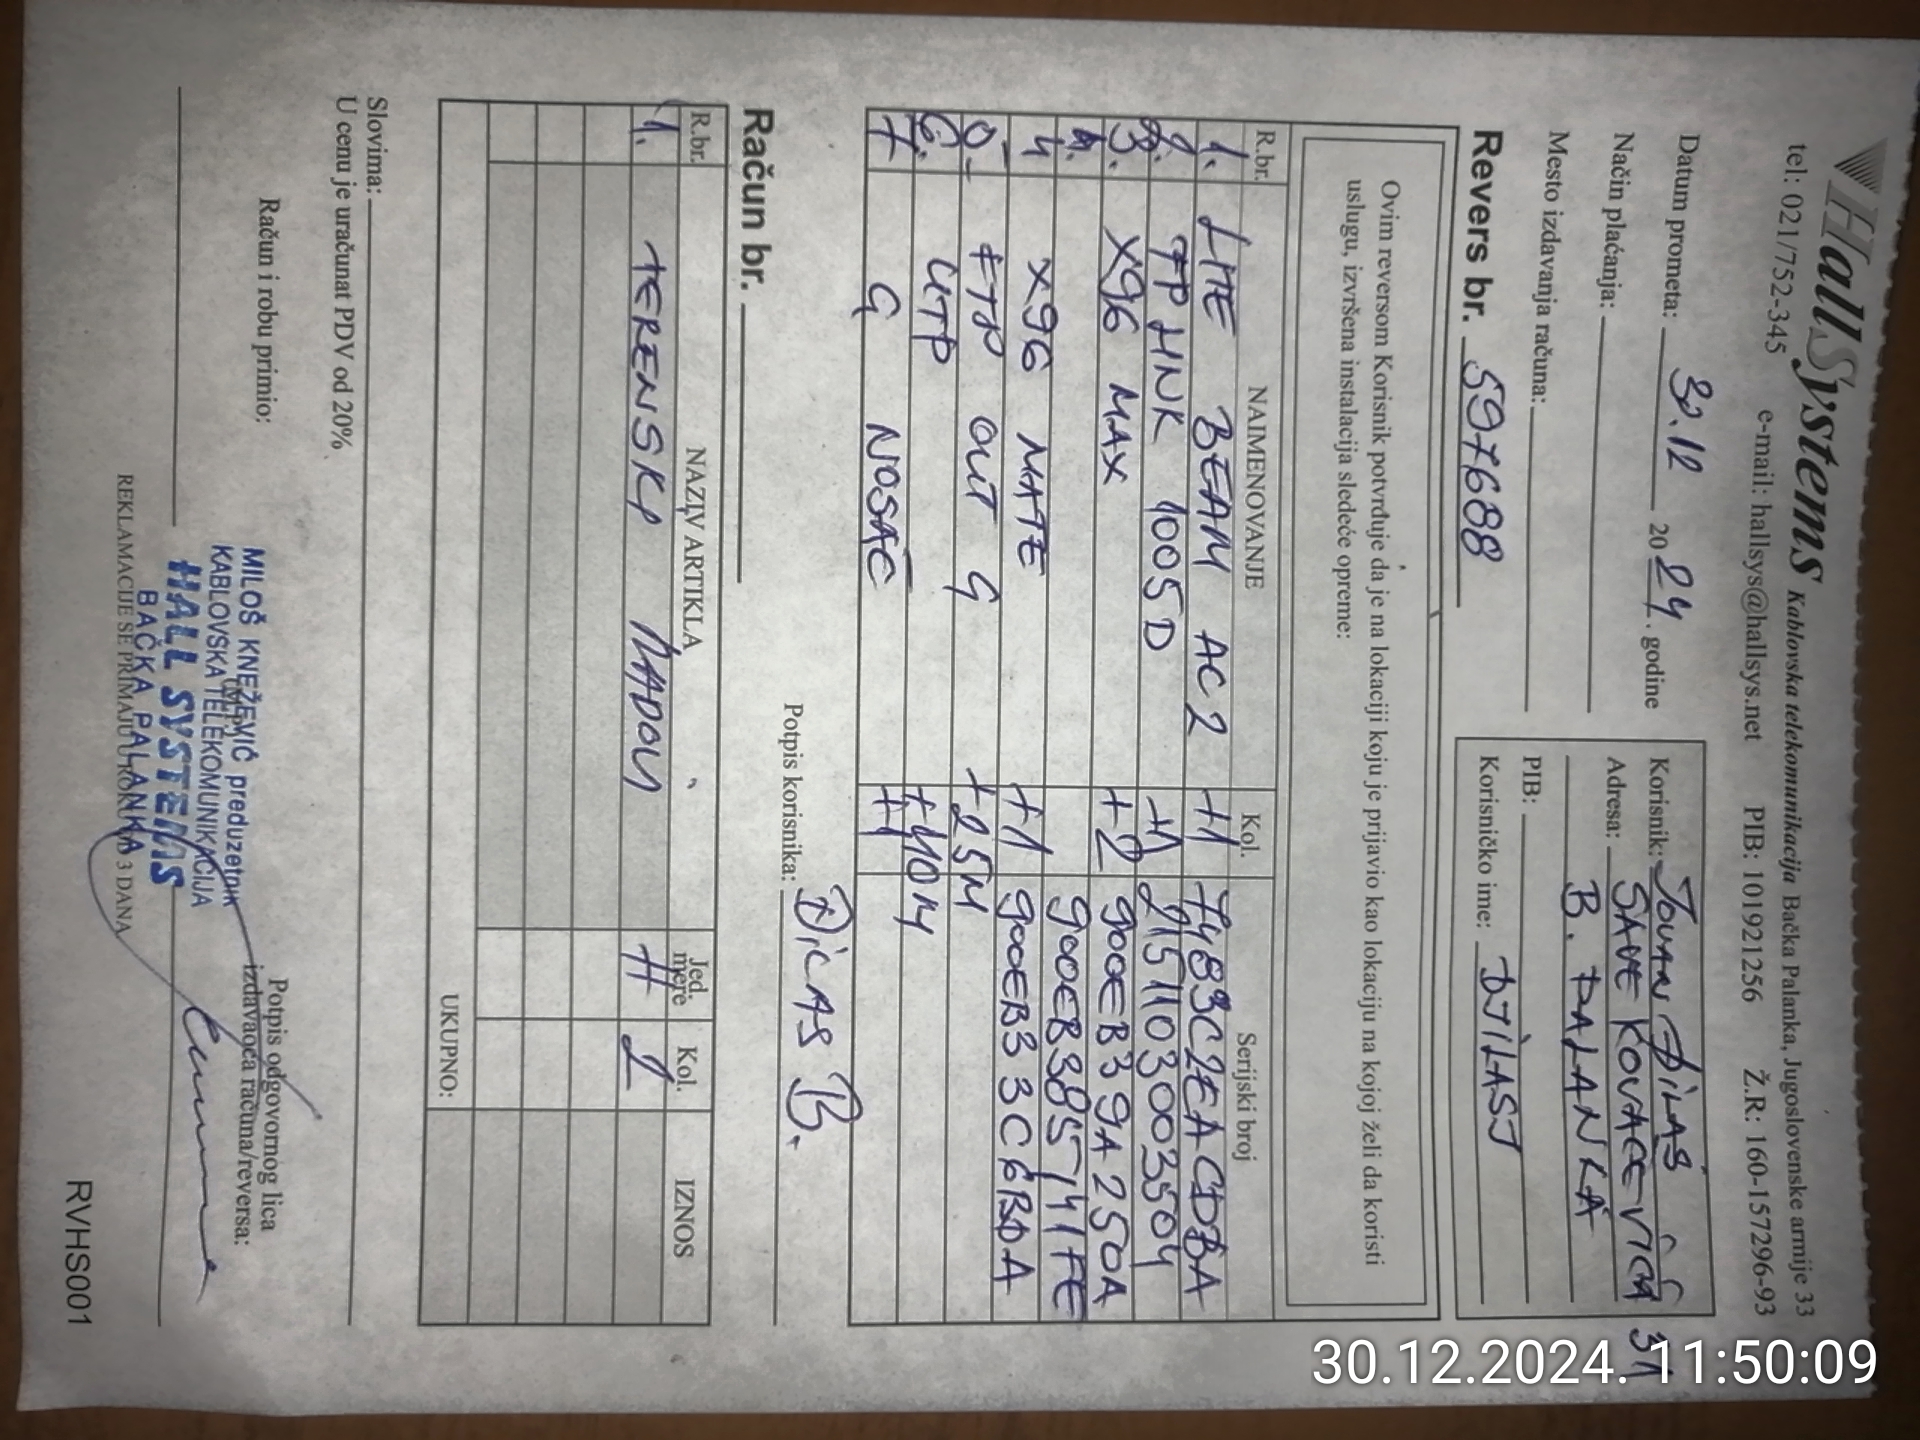 HallSystems Kablovska telekomunikacija Bačka Palanka, Jugoslovenske armije 33
tel: 021/752-345 e-mail: hallsys@hallsys.net PIB: 101921256 Ž.R: 160-157296-93
Datum prometa: 30.12 2024. godine
Način plaćanja:
Mesto izdavanja računa:
Korisnik: JOVAN ĐILAS
Adresa: SAVE KOVAČEVIĆA 31
B. PALANKA
PIB:
Korisničko ime: DJILASJ
Revers br. 597688
Ovim reversom Korisnik potvrđuje da je na lokaciji koju je prijavio kao lokaciju na kojoj želi da koristi
uslugu, izvršena instalacija sledeće opreme:
R.br. NAIMENOVANJE Kol. Serijski broj
1. LITE BEAM AC 2 +1 7483C2EACDBA
2. TP LINK 1005D +1 2151103003504
3. X96 MAX +2 900EB39A250A
900EB385741FE
4 X96 MATE +1 900EB33C6BDA
FTP OUT G +25M
6. UTP +10M
7 G NOSAČ +1
Potpis korisnika: ĐILAS B.
Račun br.
R.br. NAZIV ARTIKLA Jed. mere Kol. IZNOS
1. TERENSKI RADOVI H 2
UKUPNO:
Slovima:
U cenu je uračunat PDV od 20%
Račun i robu primio:
Potpis odgovornog lica
izdavaoca računa/reversa:
(M.P.)
MILOŠ KNEŽEVIĆ preduzetnik
KABLOVSKA TELEKOMUNIKACIJA
HALL SYSTEMS
BAČKA PALANKA
REKLAMACIJE SE PRIMAJU U ROKU OD 3 DANA
RVHS001
30.12.2024. 11:50:09